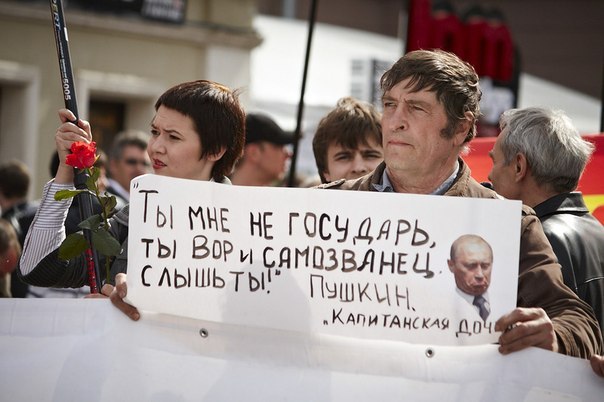 "Ты мне не государь,
ты вор и самозванец.
Слышь ты!" Пушкин.
"Капитанская доч